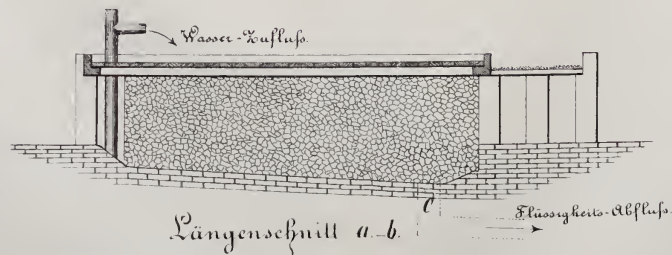 Wasser-Zufluß.
C
Flüssigkeits-Abfluß.
Längenschnitt a-b.